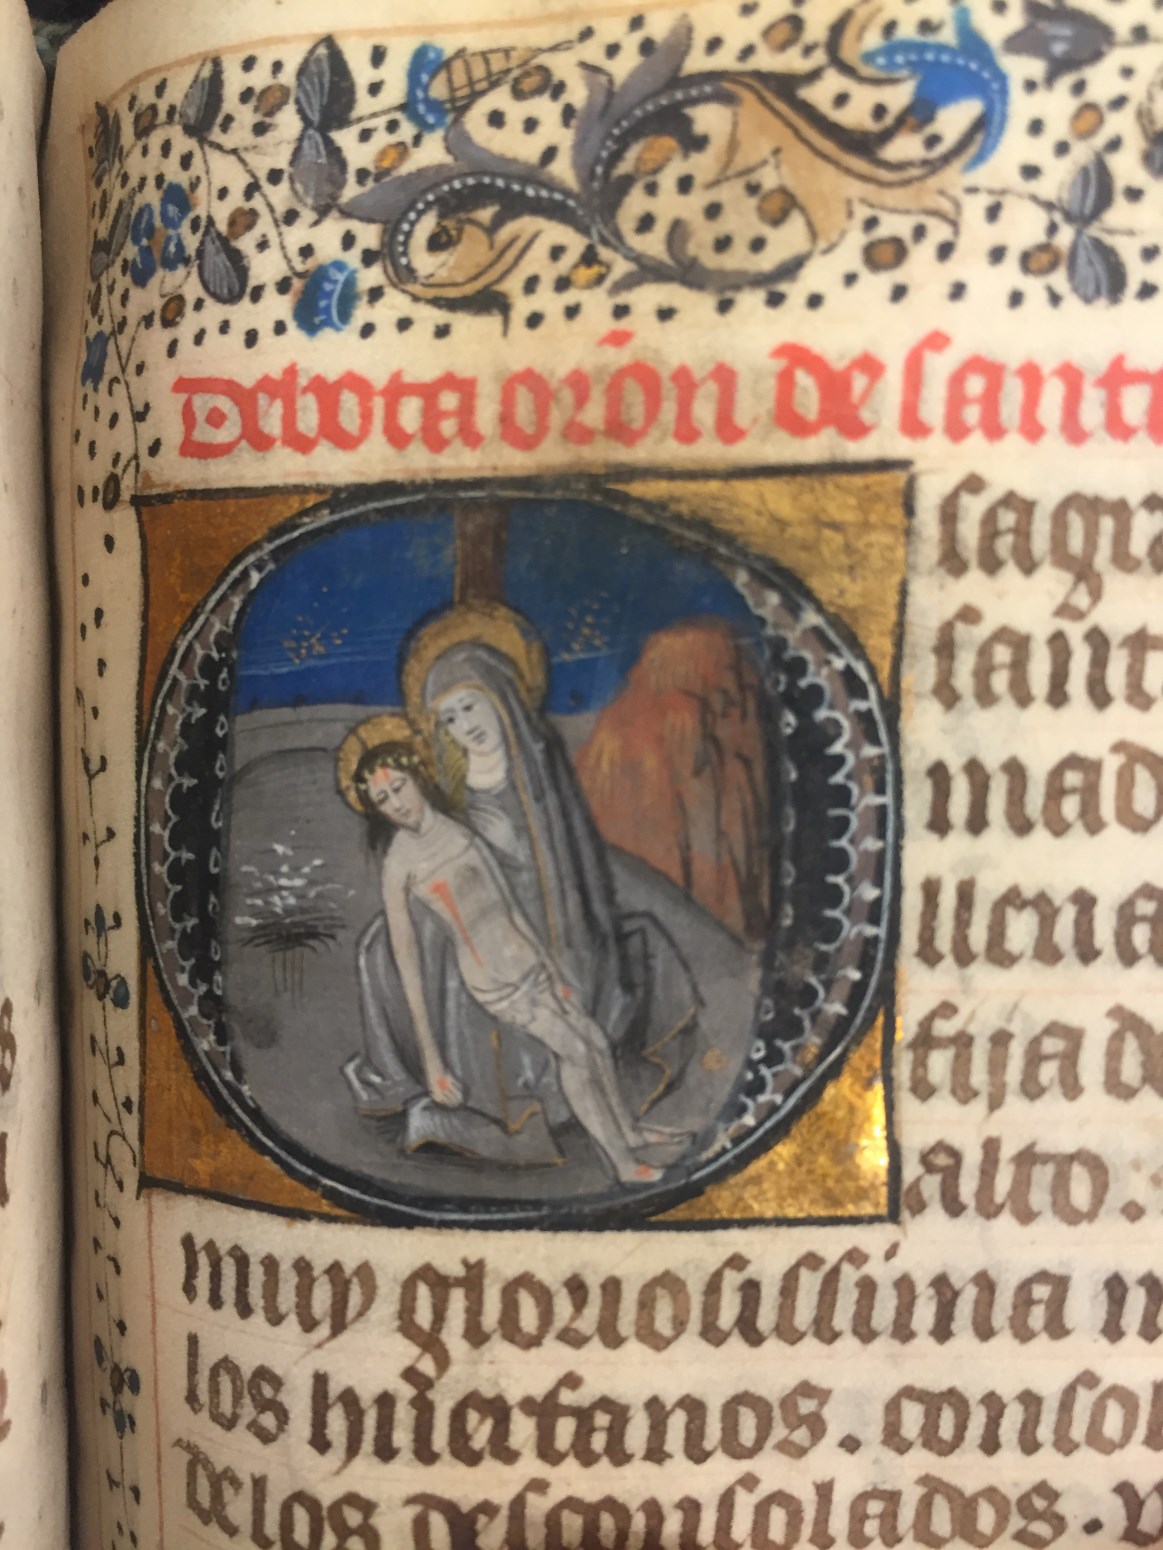 Devota oron de sant
sagra
sant
mad
llena
fija d
alto.
muy gloriosissima m
los huerfanos. consol
delos desconsolados. v